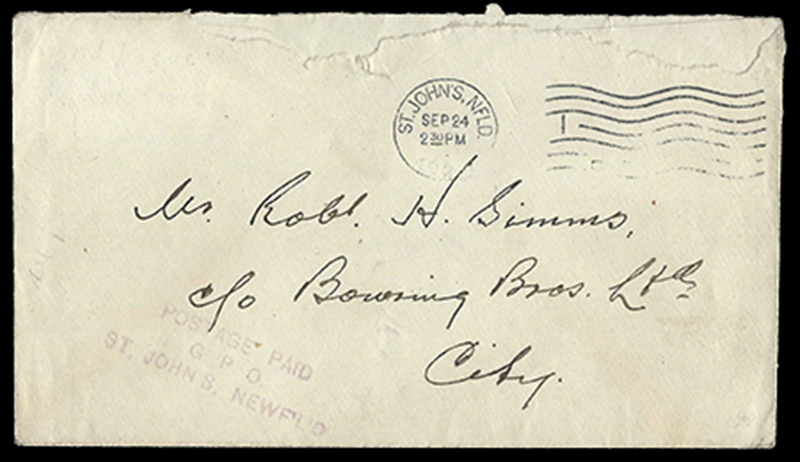 ST. JOHN'S, NFLD.
SEP 24
2 30 PM
1
Mr. Robt. H. Simms,
c/o Bowring Bros. Ltd.
City.
POSTAGE PAID
G. P. O.
ST. JOHN'S, NEWF'L'D